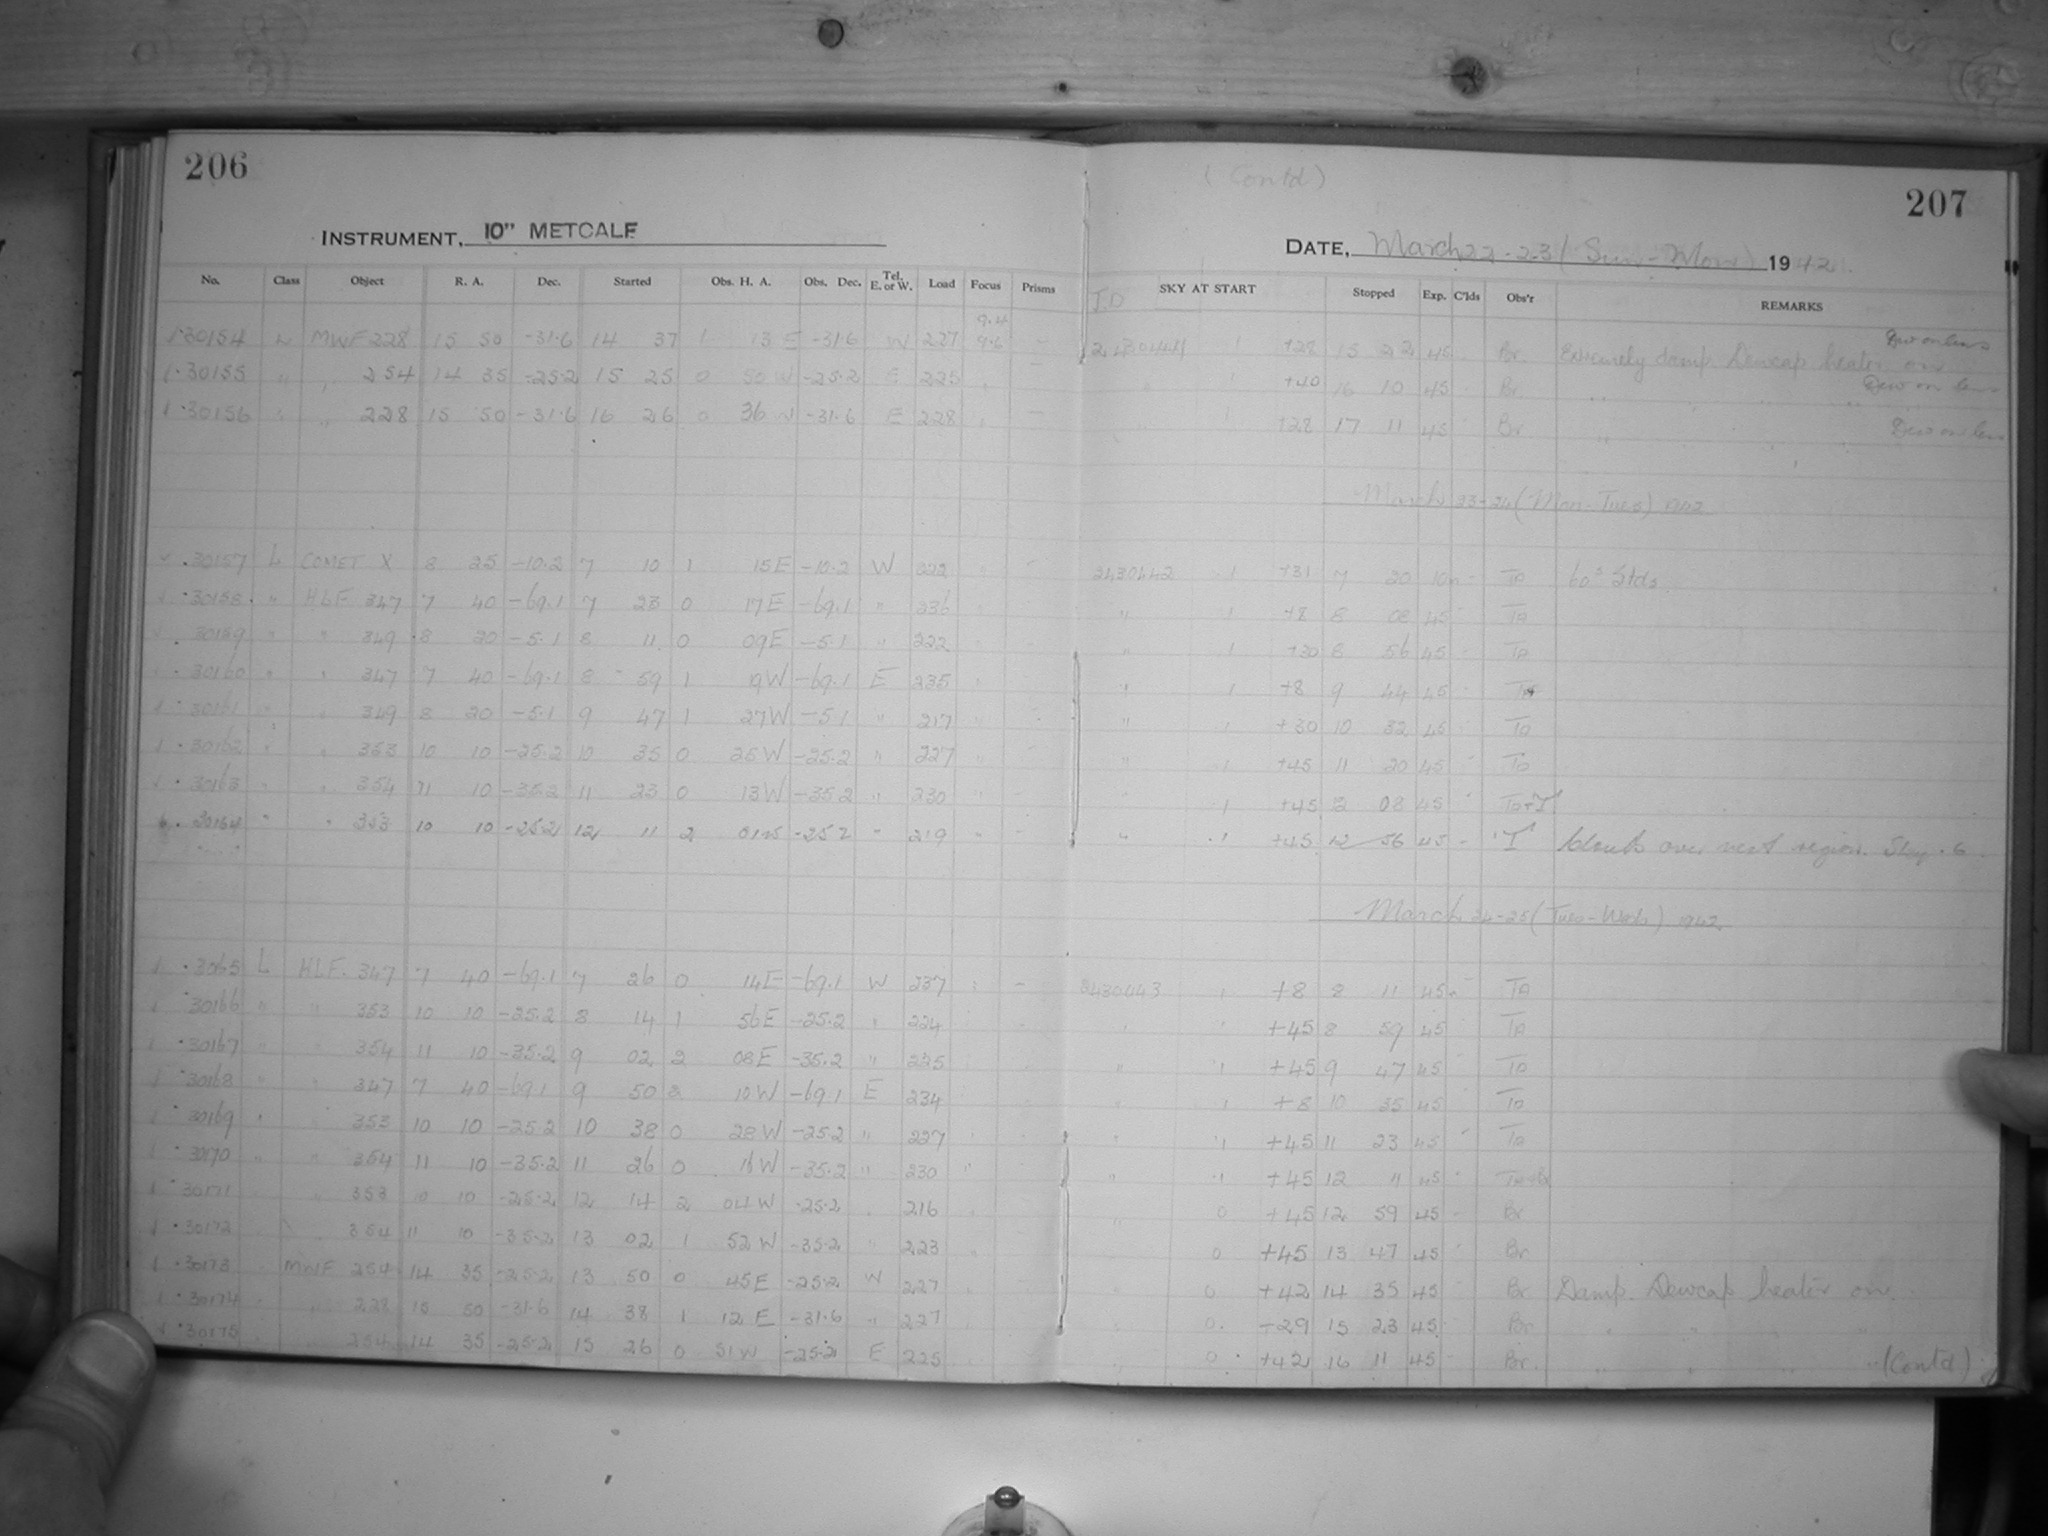 206
(Contd)
207
INSTRUMENT, 10" METCALF
DATE, March 22-23 (Sun-Mon) 1942.
No. Class Object R. A. Dec. Started Obs. H. A. Obs. Dec. Tel. E. or W. Load Focus Prisms J.D SKY AT START Stopped Exp. C'lds Obs'r REMARKS
30154 L MWF 228 15 50 -31.6 14 37 1 13 E -31.6 W 227 9.6 2430441 1 +28 15 22 45 Br Extremely damp Dewcap heater on Dew on lens
30155 " " 254 14 35 -25.2 15 25 0 50 W -25.2 E 225 " 1 +40 16 10 45 Br Dew on lens
30156 " " 228 15 50 -31.6 16 26 0 36 W -31.6 E 228 1 +28 17 11 45 Br Dew on lens
March 23-24 (Mon-Tues) 1942
30157 L COMET X 8 25 -10.2 7 10 1 15E -10.2 W 222 2430442 1 +31 7 20 10 TD 60s Stds
30158 " HLF 347 7 40 -69.1 7 23 0 17E -69.1 " 236 " 1 +8 8 08 45 TD
30159 " " 349 8 20 -5.1 8 11 0 09E -5.1 " 222 " 1 +30 8 56 45 TD
30160 " " 347 7 40 -69.1 8 59 1 19W -69.1 E 235 " 1 +8 9 44 45
30161 " " 349 8 20 -5.1 9 47 1 27W -5.1 " 217 " 1 +30 10 32 45 TD
30162 " " 353 10 10 -25.2 10 35 0 25W -25.2 " 227 " 1 +45 11 20 45 TD
30163 " " 354 11 10 -35.2 11 23 0 13W -35.2 " 230 " 1 +45 08 45
30164 " " 353 10 10 -25.2 12 11 2 -25.2 " 219 " 1 +45 12 56 45 Clouds over next region.
March 24-25 (Tues-Wed) 1942
3065 L HLF. 347 7 40 -69.1 7 26 0 14E -69.1 W 237 2430443 1 +8 8 11 45 TD
30166 " " 353 10 10 -25.2 8 14 1 56E -25.2 " 224 " 1 +45 8 59 45 TD
30167 " " 354 11 10 -35.2 9 02 2 08E -35.2 " 225 " 1 +45 9 47 45 TD
30168 " " 347 7 40 -69.1 9 50 2 10W -69.1 E 234 " 1 +8 10 35 45 TD
30169 " " 353 10 10 -25.2 10 38 0 28W -25.2 " 227 " 1 +45 11 23 45 TD
30170 " " 354 11 10 -35.2 11 26 0 16W -35.2 " 230 " 1 +45 12 11 45
30171 " 353 10 10 -25.2 12 14 2 04W -25.2 216 " 0 +45 12 59 45 Br
30172 " 354 11 10 -35.2 13 02 1 52W -35.2 " 223 0 +45 13 47 45 Br
30173 MWF 254 14 35 -25.2 13 50 0 45E -25.2 W 227 0 +42 14 35 45 Br Damp. Dewcap heater on.
30174 " 228 15 50 -31.6 14 38 1 12E -31.6 " 227 0 +29 15 23 45 Br " "
30175 " 254 14 35 -25.2 15 26 0 51W -25.2 E 225 0 +42 16 11 45 Br. " " "
(Contd)